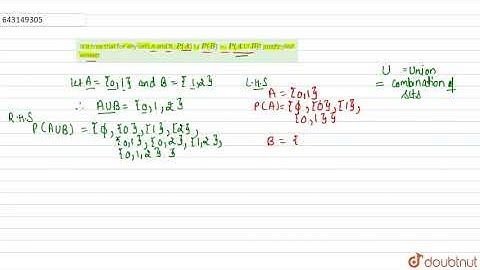 643149305
Is it true that for any sets A and B, P(A) ∪ P(B) = P(A∪B)? Justify your answer.
Let A = {0,1} and B = {1,2}
∴ A∪B = {0,1,2}
R.H.S
P(A∪B) = {ϕ, {0}, {1}, {2},
{0,1}, {0,2}, {1,2},
{0,1,2}}
L.H.S
A = {0,1}
P(A) = {ϕ, {0}, {1},
{0,1}}
B = {
U = Union
= combination of
sets
doubtnut